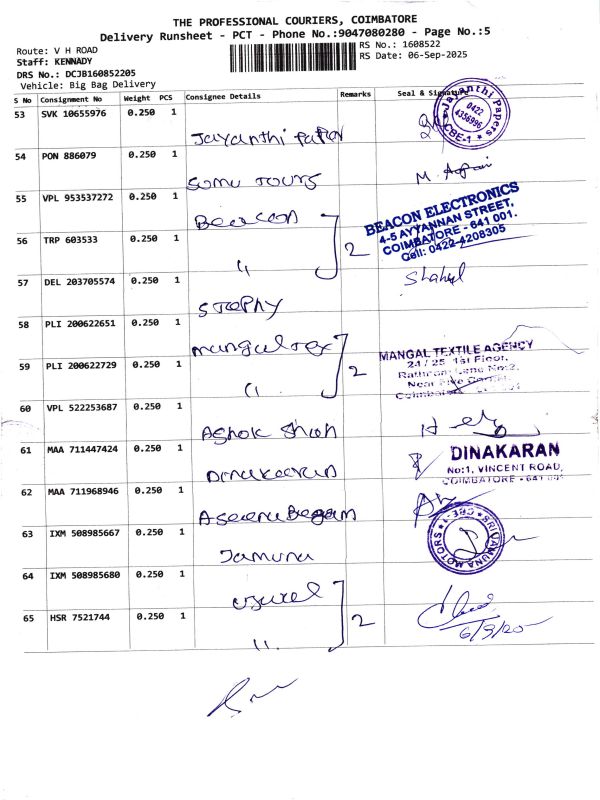 THE PROFESSIONAL COURIERS, COIMBATORE
Delivery Runsheet - PCT - Phone No.:9047080280 - Page No.:5
Route: V H ROAD
RS No.: 1608522
Staff: KENNADY
RS Date: 06-Sep-2025
DRS No.: DCJB160852205
Vehicle: Big Bag Delivery
S No Consignment No Weight PCS Consignee Details Remarks Seal & Signature
53 SVK 10655976 0.250 1 Jayanthi Paper
Jayanthi Papers
0422
4356996
CBE-1
54 PON 886079 0.250 1 Somu Tours M.
55 VPL 953537272 0.250 1 Beacon
56 TRP 603533 0.250 1 " 2
BEACON ELECTRONICS
4-5 AYYANNAN STREET,
COIMBATORE - 641 001.
Cell: 0422-4208305
57 DEL 203705574 0.250 1 STROPHY
58 PLI 200622651 0.250 1 Mangal Tex
59 PLI 200622729 0.250 1 " 2
MANGAL TEXTILE AGENCY
24 / 25 1st Floor,
Near Five Corner,
60 VPL 522253687 0.250 1 Ashok Shah
61 MAA 711447424 0.250 1 Dinakaran
DINAKARAN
No:1, VINCENT ROAD,
COIMBATORE - 641 001
62 MAA 711968946 0.250 1 Begam
63 IXM 508985667 0.250 1 Jamuna
SRI JAMUNA MOTORS
CBE-1
64 IXM 508985680 0.250 1
65 HSR 7521744 0.250 1 " 2
6/9/25